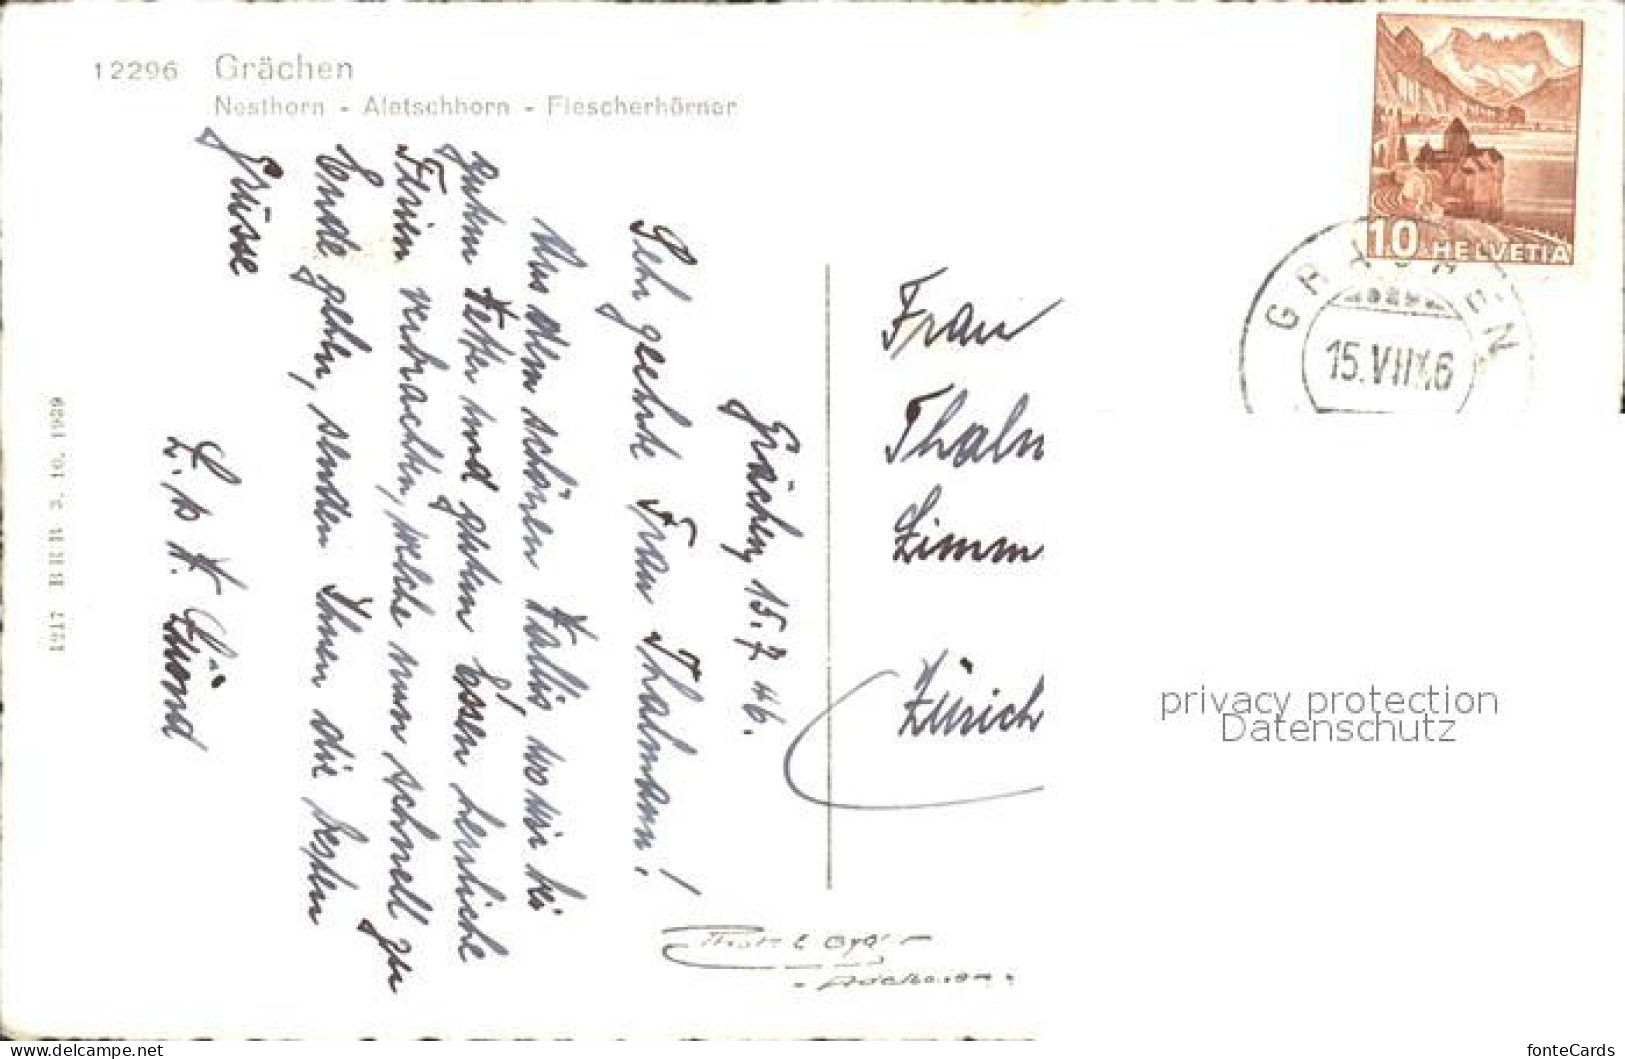 12296 Grächen
Nesthorn - Aletschhorn - Fiescherhörner
Grächen, 15. 7. 46.
Sehr geehrte Frau Thalmann!
Aus dem schönen Wallis, wo wir bei
gutem Wetter und gutem Essen herrliche
Ferien verbrachten, welche nun schnell zu
Ende gehen, senden Ihnen die besten
Grüsse
1217 BRB 3. 10. 1939
Frau
Thalm
Zimm
Zürich
10 HELVETIA
GRÄCHEN
15.VII.46
privacy protection
Datenschutz
www.delcampe.net
fonteCards